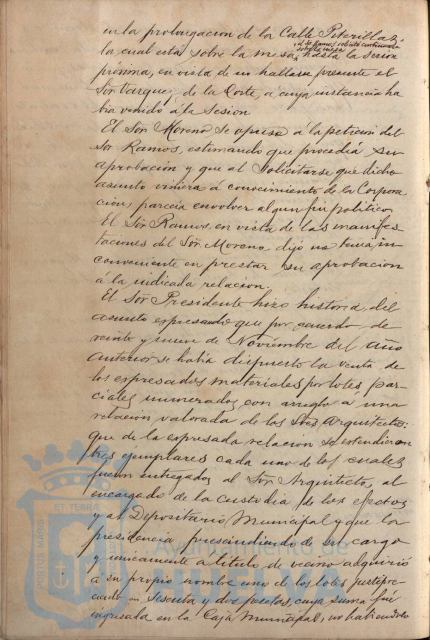 en la prolongacion de la Calle Peterillas:
la cual está sobre la mesa, hasta la sesion
el Sr. Ramos solicitó continuase
sobre la mesa
próxima, en vista de no hallarse presente el
Sor Vazquez de la Corte, á cuya instancia ha
bia venido á la Sesion
El Sor Moreno se opuso á la peticion del
Sor Ramos, estimando que procedia su
aprobacion y que al solicitarse que dicho
asunto viniera á conocimiento de la Corpora
cion, parecia envolver algun fin politico
El Sor Ramos, en vista de las manifes
taciones del Sor Moreno dijo no tenia in
conveniente en prestar su aprobacion
á la indicada relacion.
El Sor Presidente hizo historia del
asunto expresando que por acuerdo de
veinte y nueve de Noviembre del año
anterior se habia dispuesto la venta de
los expresados materiales por lotes par-
ciales numerados con arreglo á una
relacion valorada de los Sres Arquitectos:
que de la expresada relacion se estendieron
tres ejemplares cada uno de los cuales
fueron entregados al Sor Arquitecto, al
encargado de la custodia de los efectos
y al Depositario Municipal y que la
presidencia prescindiendo de su cargo
y unicamente á titulo de vecino adquirió
á su propio nombre uno de los lotes justipre
ciado en sesenta y dos pesetas, cuya suma fué
ingresada en la Caja Municipal, no habiendole
PORTUS MARIS
ET TERRAE
Ayuntamiento de